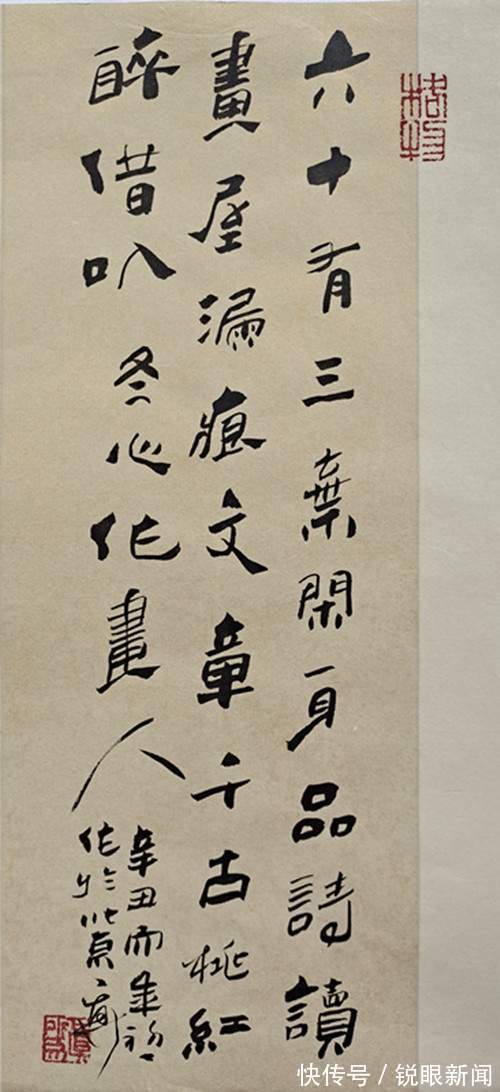 格物
六十有三棄閑身品詩讀
畫屋漏痕文章千古桃紅
醉借以冬心作畫人
辛丑
作於北京
快传号/锐眼新闻